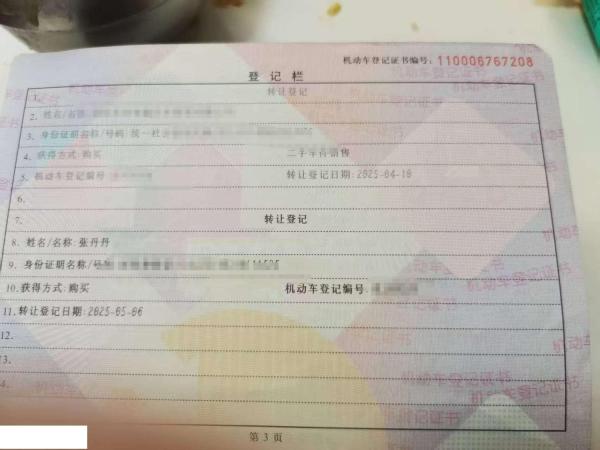 机动车登记证书编号：110006767208
登记栏
1. 转让登记
2. 姓名/名称:
3. 身份证明名称/号码:统一社会
4. 获得方式:购买 二手车待销售
5. 机动车登记编号 转让登记日期:2025-04-18
6.
7. 转让登记
8. 姓名/名称:张丹丹
9. 身份证明名称/号码
10.获得方式:购买 机动车登记编号
11.转让登记日期:2025-05-06
12.
13.
4.
第 3 页